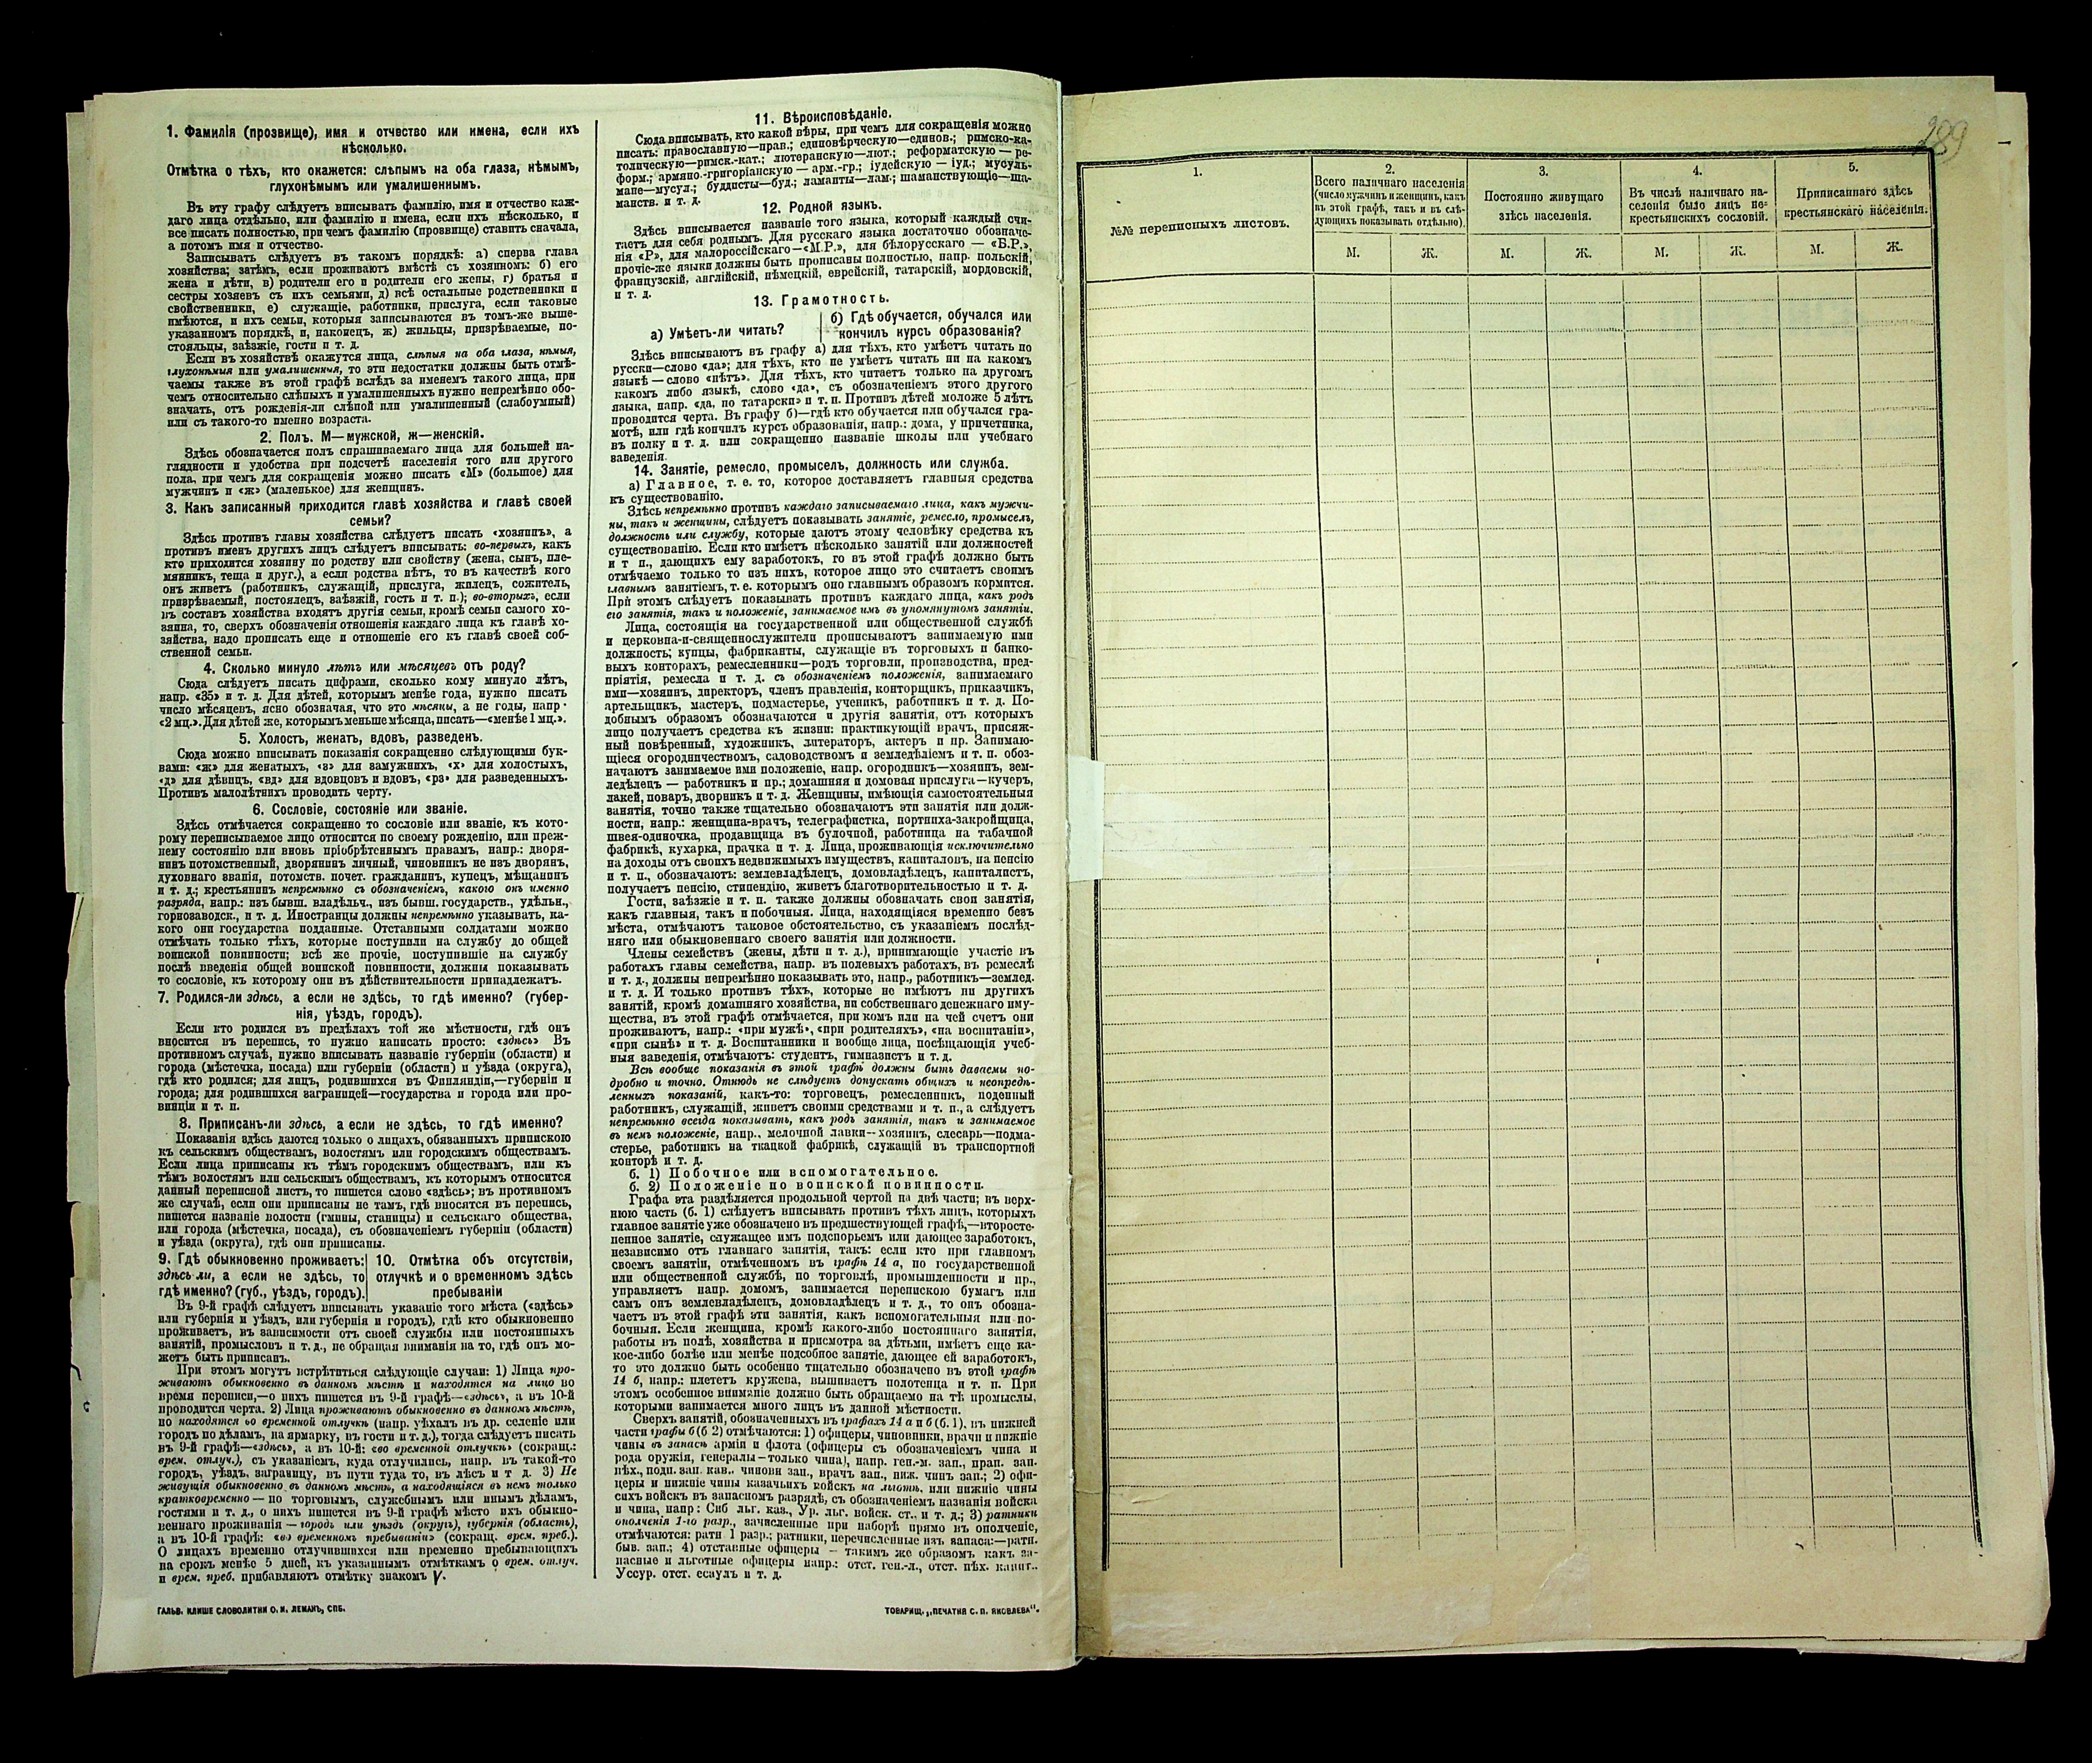 1. Фамилія (прозвище), имя и отчество или имена, если ихъ
нѣсколько.
Отмѣтка о тѣхъ, кто окажется: слѣпымъ на оба глаза, нѣмымъ,
глухонѣмымъ или умалишеннымъ.
Въ эту графу слѣдуетъ вписывать фамилію, имя и отчество каж-
даго лица отдѣльно, или фамилію и имена, если ихъ нѣсколько, и
все писать полностью, при чемъ фамилію (прозвище) ставить сначала,
а потомъ имя и отчество.
Записывать слѣдуетъ въ такомъ порядкѣ: а) сперва глава
хозяйства; затѣмъ, если проживаютъ вмѣстѣ съ хозяиномъ: б) его
жена и дѣти, в) родители его и родители его жены, г) братья и
сестры хозяевъ съ ихъ семьями, д) всѣ остальные родственники и
свойственники, е) служащіе, работники, прислуга, если таковые
имѣются, и ихъ семьи, которыя записываются въ томъ-же выше-
указанномъ порядкѣ, и, наконецъ, ж) жильцы, призрѣваемые, по-
стояльцы, заѣзжіе, гости и т. д.
Если въ хозяйствѣ окажутся лица, слѣпыя на оба глаза, нѣмыя,
глухонѣмыя или умалишенныя, то эти недостатки должны быть отмѣ-
чаемы также въ этой графѣ вслѣдъ за именемъ такого лица, при
чемъ относительно слѣпыхъ и умалишенныхъ нужно непремѣнно обо-
значать, отъ рожденія-ли слѣпой или умалишенный (слабоумный)
или съ такого-то именно возраста.
2. Полъ. М—мужской, ж—женскій.
Здѣсь обозначается полъ спрашиваемаго лица для большей на-
глядности и удобства при подсчетѣ населенія того или другого
пола, при чемъ для сокращенія можно писать «М» (большое) для
мужчинъ и «ж» (маленькое) для женщинъ.
3. Какъ записанный приходится главѣ хозяйства и главѣ своей
семьи?
Здѣсь противъ главы хозяйства слѣдуетъ писать «хозяинъ», а
противъ именъ другихъ лицъ слѣдуетъ вписывать: во-первыхъ, какъ
кто приходится хозяину по родству или свойству (жена, сынъ, пле-
мянникъ, теща и друг.), а если родства нѣтъ, то въ качествѣ кого
онъ живетъ (работникъ, служащій, прислуга, жилецъ, сожитель,
призрѣваемый, постоялецъ, заѣзжій, гость и т. п.); во-вторыхъ, если
въ составъ хозяйства входятъ другія семьи, кромѣ семьи самого хо-
зяина, то, сверхъ обозначенія отношенія каждаго лица къ главѣ хо-
зяйства, надо прописать еще и отношеніе его къ главѣ своей соб-
ственной семьи.
4. Сколько минуло лѣтъ или мѣсяцевъ отъ роду?
Сюда слѣдуетъ писать цифрами, сколько кому минуло лѣтъ,
напр. «35» и т. д. Для дѣтей, которымъ менѣе года, нужно писать
число мѣсяцевъ, ясно обозначая, что это мѣсяцы, а не годы, напр.
«2 мц.». Для дѣтей же, которымъ меньше мѣсяца, писать—«менѣе 1 мц.».
5. Холостъ, женатъ, вдовъ, разведенъ.
Сюда можно вписывать показанія сокращенно слѣдующими бук-
вами: «ж» для женатыхъ, «з» для замужнихъ, «х» для холостыхъ,
«д» для дѣвицъ, «вд» для вдовцовъ и вдовъ, «рз» для разведенныхъ.
Противъ малолѣтнихъ проводить черту.
6. Сословіе, состояніе или званіе.
Здѣсь отмѣчается сокращенно то сословіе или званіе, къ кото-
рому переписываемое лицо относится по своему рожденію, или преж-
нему состоянію или вновь пріобрѣтеннымъ правамъ, напр.: дворя-
нинъ потомственный, дворянинъ личный, чиновникъ не изъ дворянъ,
духовнаго званія, потомств. почет. гражданинъ, купецъ, мѣщанинъ
и т. д.; крестьянинъ непремѣнно съ обозначеніемъ, какого онъ именно
разряда, напр.: изъ бывш. владѣльч., изъ бывш. государств., удѣльн.,
горнозаводск., и т. д. Иностранцы должны непремѣнно указывать, ка-
кого они государства подданные. Отставными солдатами можно
отмѣчать только тѣхъ, которые поступили на службу до общей
воинской повинности; всѣ же прочіе, поступившіе на службу
послѣ введенія общей воинской повинности, должны показывать
то сословіе, къ которому они въ дѣйствительности принадлежатъ.
7. Родился-ли здѣсь, а если не здѣсь, то гдѣ именно? (губер-
нія, уѣздъ, городъ).
Если кто родился въ предѣлахъ той же мѣстности, гдѣ онъ
вносится въ перепись, то нужно написать просто: «здѣсь» Въ
противномъ случаѣ, нужно вписывать названіе губерніи (области) и
города (мѣстечка, посада) или губерніи (области) и уѣзда (округа),
гдѣ кто родился; для лицъ, родившихся въ Финляндіи,—губерніи и
города; для родившихся заграницей—государства и города или про-
винціи и т. п.
8. Приписанъ-ли здѣсь, а если не здѣсь, то гдѣ именно?
Показанія здѣсь даются только о лицахъ, обязанныхъ припискою
къ сельскимъ обществамъ, волостямъ или городскимъ обществамъ.
Если лица приписаны къ тѣмъ городскимъ обществамъ, или къ
тѣмъ волостямъ или сельскимъ обществамъ, къ которымъ относится
данный переписной листъ, то пишется слово «здѣсь»; въ противномъ
же случаѣ, если они приписаны не тамъ, гдѣ вносятся въ перепись,
пишется названіе волости (гмины, станицы) и сельскаго общества,
или города (мѣстечка, посада), съ обозначеніемъ губерніи (области)
и уѣзда (округа), гдѣ они приписаны.
9. Гдѣ обыкновенно проживаетъ:
здѣсь-ли, а если не здѣсь, то
гдѣ именно? (губ., уѣздъ, городъ).
10. Отмѣтка объ отсутствіи,
отлучкѣ и о временномъ здѣсь
пребываніи
Въ 9-й графѣ слѣдуетъ вписывать указаніе того мѣста («здѣсь»
или губернія и уѣздъ, или губернія и городъ), гдѣ кто обыкновенно
проживаетъ, въ зависимости отъ своей службы или постоянныхъ
занятій, промысловъ и т. д., не обращая вниманія на то, гдѣ онъ мо-
жетъ быть приписанъ.
При этомъ могутъ встрѣтиться слѣдующіе случаи: 1) Лица про-
живаютъ обыкновенно въ данномъ мѣстѣ и находятся на лицо во
время переписи,—о нихъ пишется въ 9-й графѣ—«здѣсь», а въ 10-й
проводится черта. 2) Лица проживаютъ обыкновенно въ данномъ мѣстѣ,
но находятся во временной отлучкѣ (напр. уѣхалъ въ др. селеніе или
городъ по дѣламъ, на ярмарку, въ гости и т. д.), тогда слѣдуетъ писать
въ 9-й графѣ—«здѣсь», а въ 10-й: «во временной отлучкѣ» (сокращ.:
врем. отлуч.), съ указаніемъ, куда отлучились, напр. въ такой-то
городъ, уѣздъ, заграницу, въ пути туда то, въ лѣсъ и т д. 3) Не
живущія обыкновенно въ данномъ мѣстѣ, а находящіяся въ немъ только
кратковременно — по торговымъ, служебнымъ или инымъ дѣламъ,
гостями и т. д., о нихъ пишется въ 9-й графѣ мѣсто ихъ обыкно-
веннаго проживанія — городъ или уѣздъ (округъ), губернія (область),
а въ 10-й графѣ: «во временномъ пребываніи» (сокращ. врем. преб.).
О лицахъ временно отлучившихся или временно пребывающихъ
на срокъ менѣе 5 дней, къ указаннымъ отмѣткамъ о врем. отлуч.
и врем. преб. прибавляютъ отмѣтку знакомъ V.
ГАЛЬВ. КЛИШЕ СЛОВОЛИТНИ О. И. ЛЕМАНЪ, СПБ.
11. Вѣроисповѣданіе.
Сюда вписывать, кто какой вѣры, при чемъ для сокращенія можно
писать: православную—прав.; единовѣрческую—единов.; римско-ка-
толическую—римск.-кат.; лютеранскую—лют.; реформатскую — ре-
форм.; армяно.-григоріанскую — арм.-гр.; іудейскую — іуд.; мусуль-
мане—мусул.; буддисты—буд.; ламаиты—лам.; шаманствующіе—ша-
манств. и т. д.
12. Родной языкъ.
Здѣсь вписывается названіе того языка, который каждый счи-
таетъ для себя роднымъ. Для русскаго языка достаточно обозначе-
нія «Р», для малороссійскаго—«М.Р.», для бѣлорусскаго — «Б.Р.»,
прочіе-же языки должны быть прописаны полностью, напр. польскій,
французскій, англійскій, нѣмецкій, еврейскій, татарскій, мордовскій,
и т. д.
13. Грамотность.
а) Умѣетъ-ли читать?
б) Гдѣ обучается, обучался или
кончилъ курсъ образованія?
Здѣсь вписываютъ въ графу а) для тѣхъ, кто умѣетъ читать по
русски—слово «да»; для тѣхъ, кто не умѣетъ читать ни на какомъ
языкѣ — слово «нѣтъ». Для тѣхъ, кто читаетъ только на другомъ
какомъ либо языкѣ, слово «да», съ обозначеніемъ этого другого
языка, напр. «да, по татарски» и т. п. Противъ дѣтей моложе 5 лѣтъ
проводится черта. Въ графу б)—гдѣ кто обучается или обучался гра-
мотѣ, или гдѣ кончилъ курсъ образованія, напр.: дома, у причетника,
въ полку и т. д. или сокращенно названіе школы или учебнаго
заведенія.
14. Занятіе, ремесло, промыселъ, должность или служба.
а) Главное, т. е. то, которое доставляетъ главныя средства
къ существованію.
Здѣсь непремѣнно противъ каждаго записываемаго лица, какъ мужчи-
ны, такъ и женщины, слѣдуетъ показывать занятіе, ремесло, промыселъ,
должность или службу, которые даютъ этому человѣку средства къ
существованію. Если кто имѣетъ нѣсколько занятій или должностей
и т п., дающихъ ему заработокъ, то въ этой графѣ должно быть
отмѣчаемо только то изъ нихъ, которое лицо это считаетъ своимъ
главнымъ занятіемъ, т. е. которымъ оно главнымъ образомъ кормится.
При этомъ слѣдуетъ показывать противъ каждаго лица, какъ родъ
его занятія, такъ и положеніе, занимаемое имъ въ упомянутомъ занятіи.
Лица, состоящія на государственной или общественной службѣ
и церковно-и-священнослужители прописываютъ занимаемую ими
должность; купцы, фабриканты, служащіе въ торговыхъ и банко-
выхъ конторахъ, ремесленники—родъ торговли, производства, пред-
пріятія, ремесла и т. д. съ обозначеніемъ положенія, занимаемаго
ими—хозяинъ, директоръ, членъ правленія, конторщикъ, приказчикъ,
артельщикъ, мастеръ, подмастерье, ученикъ, работникъ и т. д. По-
добнымъ образомъ обозначаются и другія занятія, отъ которыхъ
лицо получаетъ средства къ жизни: практикующій врачъ, присяж-
ный повѣренный, художникъ, литераторъ, актеръ и пр. Занимаю-
щіеся огородничествомъ, садоводствомъ и земледѣліемъ и т. п. обоз-
начаютъ занимаемое ими положеніе, напр. огородникъ—хозяинъ, зем-
ледѣлецъ — работникъ и пр.; домашняя и домовая прислуга—кучеръ,
лакей, поваръ, дворникъ и т. д. Женщины, имѣющія самостоятельныя
занятія, точно также тщательно обозначаютъ эти занятія или долж-
ности, напр.: женщина-врачъ, телеграфистка, портниха-закройщица,
швея-одиночка, продавщица въ булочной, работница на табачной
фабрикѣ, кухарка, прачка и т. д. Лица, проживающія исключительно
на доходы отъ своихъ недвижимыхъ имуществъ, капиталовъ, на пенсію
и т. п., обозначаютъ: землевладѣлецъ, домовладѣлецъ, капиталистъ,
получаетъ пенсію, стипендію, живетъ благотворительностью и т. д.
Гости, заѣзжіе и т. п. также должны обозначать свои занятія,
какъ главныя, такъ и побочныя. Лица, находящіяся временно безъ
мѣста, отмѣчаютъ таковое обстоятельство, съ указаніемъ послѣд-
няго или обыкновеннаго своего занятія или должности.
Члены семействъ (жены, дѣти и т. д.), принимающіе участіе въ
работахъ главы семейства, напр. въ полевыхъ работахъ, въ ремеслѣ
и т. д., должны непремѣнно показывать это, напр., работникъ—землед.
и т. д. И только противъ тѣхъ, которые не имѣютъ ни другихъ
занятій, кромѣ домашняго хозяйства, ни собственнаго денежнаго иму-
щества, въ этой графѣ отмѣчается, при комъ или на чей счетъ они
проживаютъ, напр.: «при мужѣ», «при родителяхъ», «на воспитаніи»,
«при сынѣ» и т. д. Воспитанники и вообще лица, посѣщающія учеб-
ныя заведенія, отмѣчаютъ: студентъ, гимназистъ и т. д.
Всѣ вообще показанія въ этой графѣ должны быть даваемы по-
дробно и точно. Отнюдь не слѣдуетъ допускать общихъ и неопредѣ-
ленныхъ показаній, какъ-то: торговецъ, ремесленникъ, поденный
работникъ, служащій, живетъ своими средствами и т. п., а слѣдуетъ
непремѣнно всегда показывать, какъ родъ занятія, такъ и занимаемое
въ немъ положеніе, напр., мелочной лавки—хозяинъ, слесарь—подма-
стерье, работникъ на ткацкой фабрикѣ, служащій въ транспортной
конторѣ и т. д.
б. 1) Побочное или вспомогательное.
б. 2) Положеніе по воинской повинности.
Графа эта раздѣляется продольной чертой на двѣ части; въ верх-
нюю часть (б. 1) слѣдуетъ вписывать противъ тѣхъ лицъ, которыхъ
главное занятіе уже обозначено въ предшествующей графѣ,—второсте-
пенное занятіе, служащее имъ подспорьемъ или дающее заработокъ,
независимо отъ главнаго занятія, такъ: если кто при главномъ
своемъ занятіи, отмѣченномъ въ графѣ 14 а, по государственной
или общественной службѣ, по торговлѣ, промышленности и пр.,
управляетъ напр. домомъ, занимается перепискою бумагъ или
самъ онъ землевладѣлецъ, домовладѣлецъ и т. д., то онъ обозна-
чаетъ въ этой графѣ эти занятія, какъ вспомогательныя или по-
бочныя. Если женщина, кромѣ какого-либо постояннаго занятія,
работы въ полѣ, хозяйства и присмотра за дѣтьми, имѣетъ еще ка-
кое-либо болѣе или менѣе подсобное занятіе, дающее ей заработокъ,
то это должно быть особенно тщательно обозначено въ этой графѣ
14 б, напр.: плететъ кружева, вышиваетъ полотенца и т. п. При
этомъ особенное вниманіе должно быть обращаемо на тѣ промыслы,
которыми занимается много лицъ въ данной мѣстности.
Сверхъ занятій, обозначенныхъ въ графахъ 14 а и б (б. 1), въ нижней
части графы б (б 2) отмѣчаются: 1) офицеры, чиновники, врачи и нижніе
чины въ запасѣ арміи и флота (офицеры съ обозначеніемъ чина и
рода оружія, генералы—только чина), напр. ген.-м. зап., прап. зап.
пѣх., подп. зап. кав., чиновн зап., врачъ зап., ниж. чинъ зап.; 2) офи-
церы и нижніе чины казачьихъ войскъ на льготѣ, или нижніе чины
сихъ войскъ въ запасномъ разрядѣ, съ обозначеніемъ названія войска
и чина, напр: Сиб льг. каз., Ур. льг. войск. ст., и т. д.; 3) ратники
ополченія 1-го разр., зачисленные при наборѣ прямо въ ополченіе,
отмѣчаются: ратн 1 разр.; ратники, перечисленные изъ запаса:—ратн.
быв. зап.; 4) отставные офицеры — такимъ же образомъ какъ за-
пасные и льготные офицеры напр.: отст. ген.-л., отст. пѣх. капит.,
Уссур. отст. есаулъ и т. д.
ТОВАРИЩ. „ПЕЧАТНЯ С. П. ЯКОВЛЕВА“.
289
1.
№№ переписныхъ листовъ.
2.
Всего наличнаго населенія
(число мужчинъ и женщинъ, какъ
въ этой графѣ, такъ и въ слѣ-
дующихъ показывать отдѣльно).
М. Ж.
3.
Постоянно живущаго
здѣсь населенія.
М. Ж.
4.
Въ числѣ наличнаго на-
селенія было лицъ не-
крестьянскихъ сословій.
М. Ж.
5.
Приписаннаго здѣсь
крестьянскаго населенія.
М. Ж.